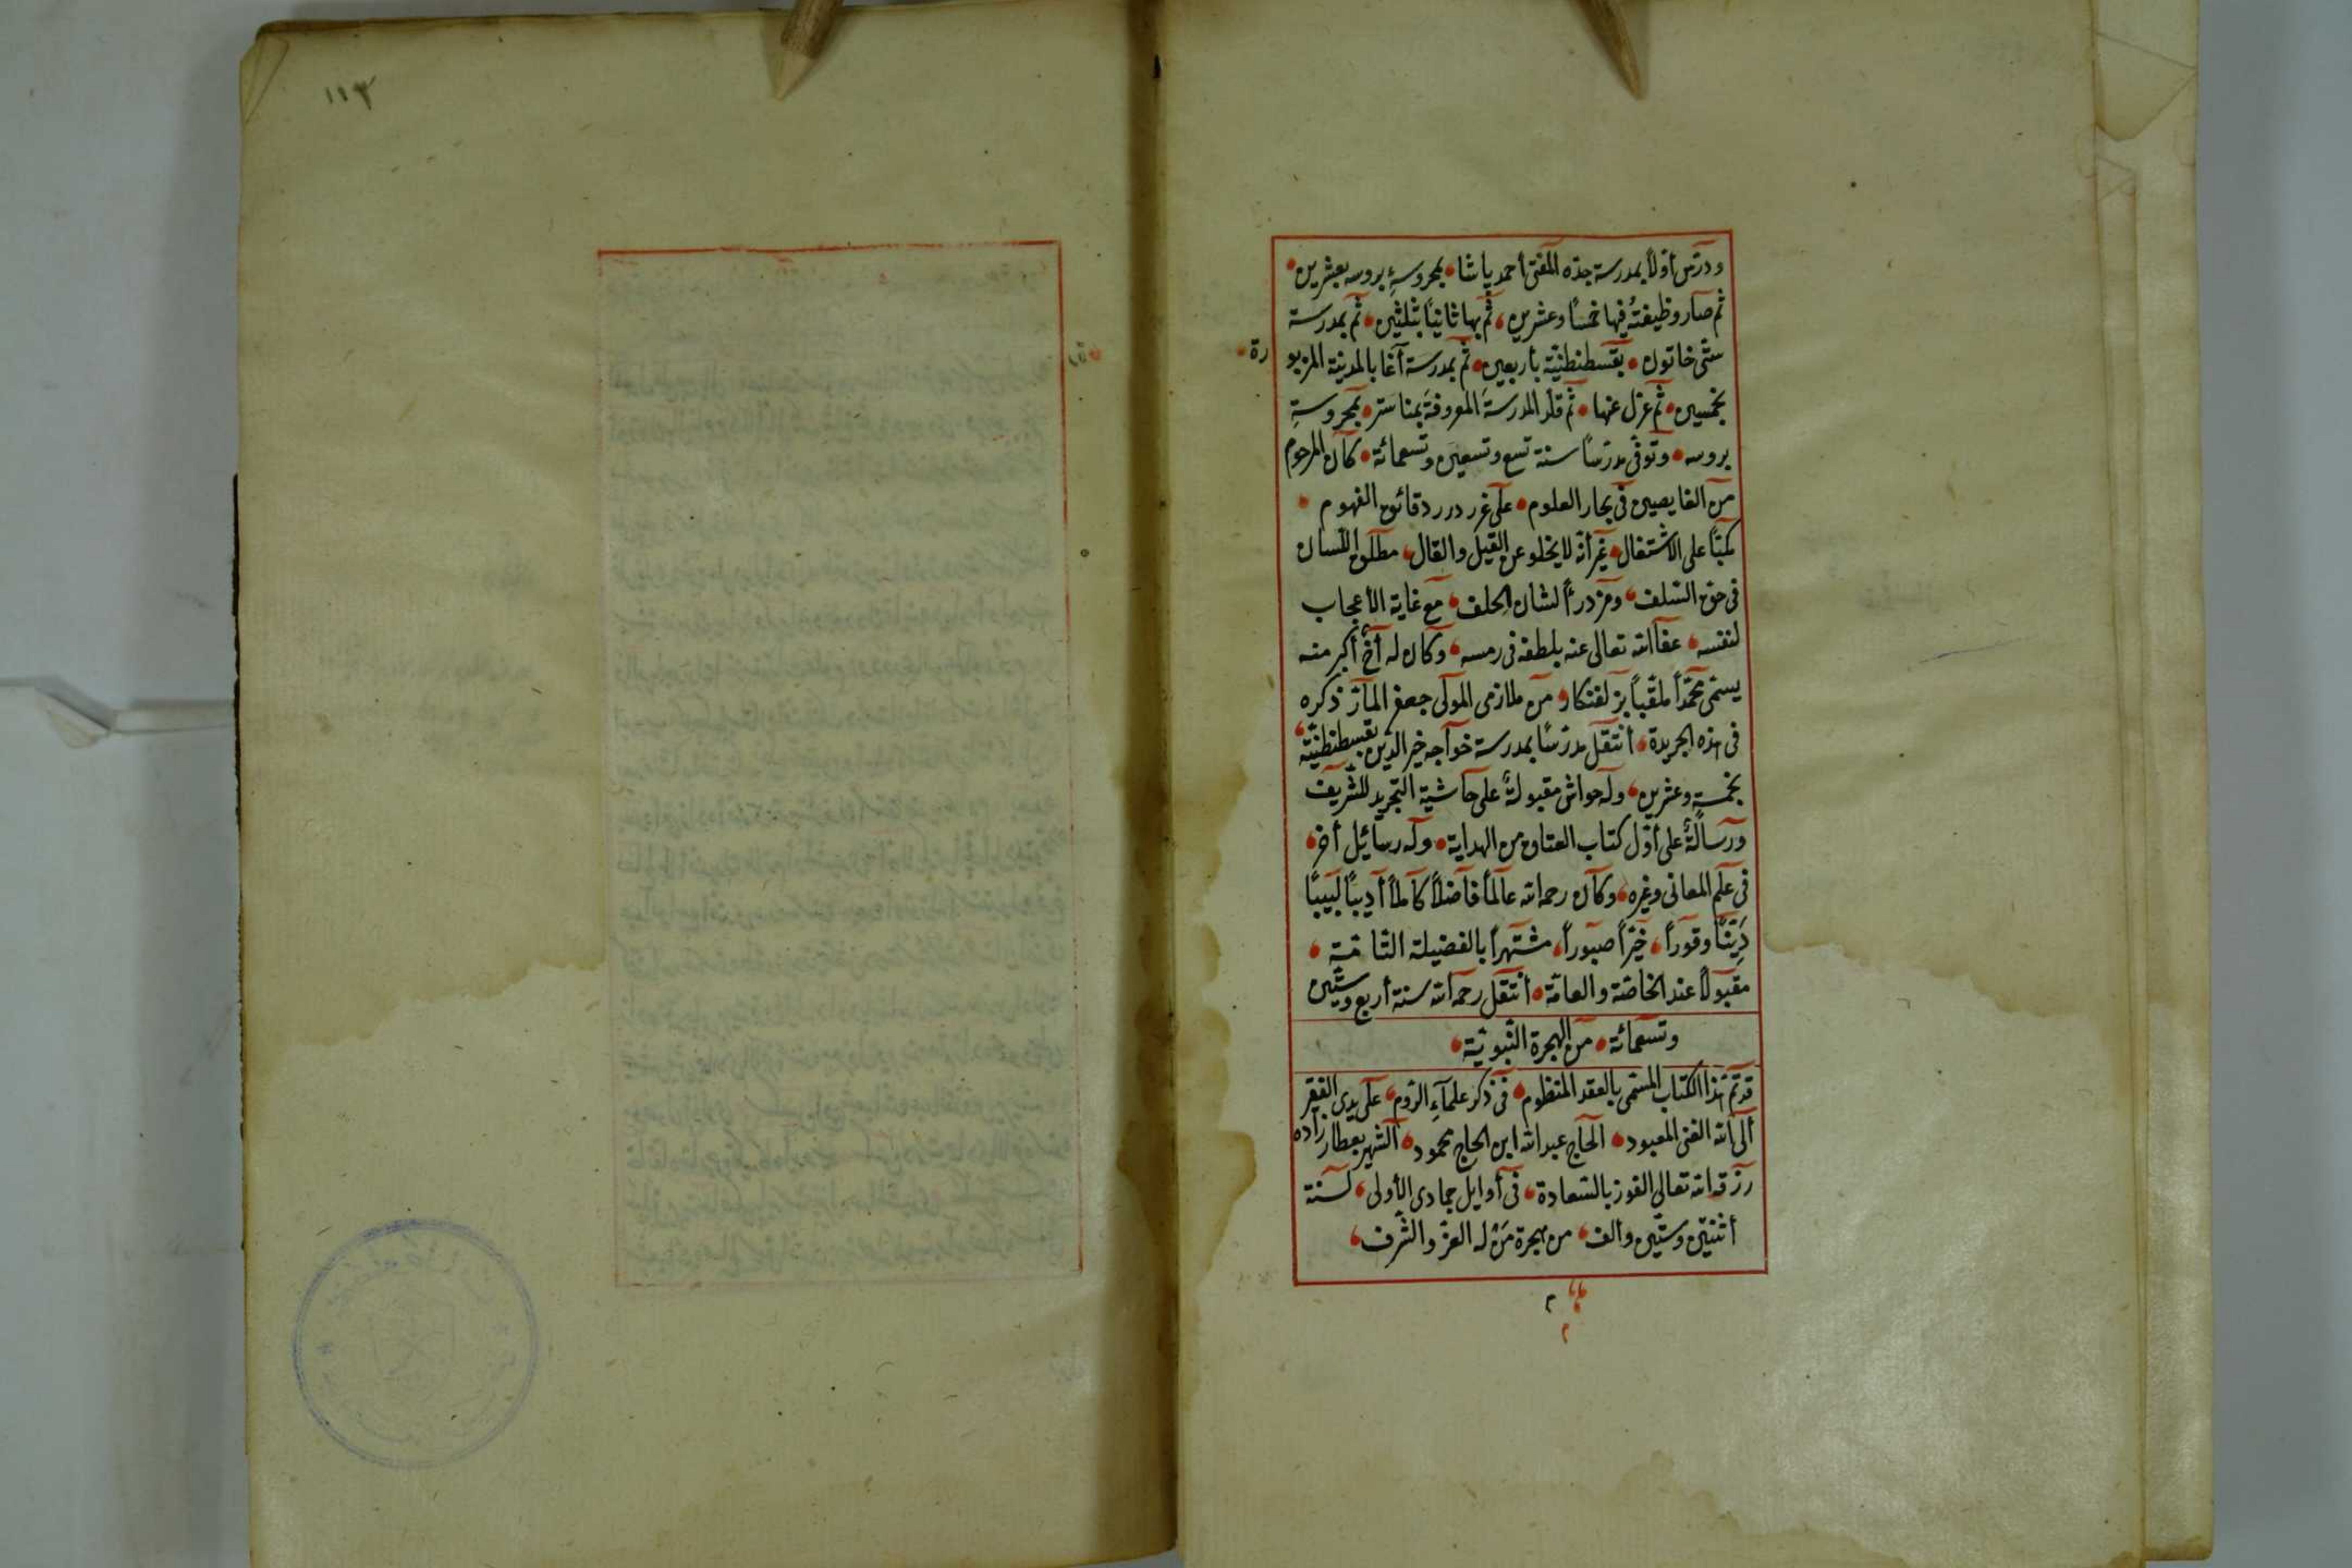 ودرّس أوّلاً بمدرسة جدّه المفتى أحمد پاشا بمحروسةِ بروسه بعشرين
ثم صار وظيفتُه فيها خمسًا وعشرين، ثم بها ثانيًا بثلثين، ثم بمدرسة
ستّى خاتون، بقسطنطنيّة بأربعين، ثم بمدرسة آغا بالمدينة المزبو
رة
بخمسين، ثم عزل عنها، ثم قلّد المدرسةَ المعروفةَ بمناستر، بمحروسةِ
بروسه، وتوفّى مدرّسًا سنة تسع وتسعين وتسعمائة، كان المرحوم
من الغايصين فى بحار العلوم، على غرر درر دقائق الفهوم
مكبّا على الاشتغال، غير أنّه لا يخلو عن القيل والقال، مطلق اللّسان
فى حق السّلف، ومزدرأ لشان الخلف، مع غاية الأعجاب
لنفسه، عفا الله تعالى عنه بلطفه فى رمسه، وكان له أخٌ أكبر منه
يسمّى محمّدًا ملقّبًا بزلفنكار، من ملازمى المولى جعفر المارّ ذكره
فى هذه الجريدة، أنتقل مدرّسًا بمدرسة خواجه خير الدّين بقسطنطنيّة
بخمسةٍ وعشرين، وله حواشٍ مقبولةٌ على حاشية التجريد للشّريف
ورسالةٌ على أوّل كتاب العتاق من الهداية، وله رسائيل أخر
فى علم المعانى وغيره، وكان رحمه الله عالمًا فاضلاً كاملاً أديبًا لبيبًا
ديّنًا وقورًا، خيّرًا صبورًا، مشتهرًا بالفضيلة التّامّة
مقبولاً عند الخاصّة والعامّة، أنتقل رحمه الله سنة أربع وستّين
وتسعمائة، من الهجرة النّبويّة
قد تمّ هذا الكتاب المسمى بالعقد المنظوم، فى ذكر علماءِ الرّوم، على يدى الفقير
الى الله الغنى المعبود، الحاج عبد الله ابن الحاج محمود، الشّهير بعطار زاده
رزقه الله تعالى الفوز بالسّعادة، فى أوايل جمادى الأولى، لسنة
أثنتين وستّين وألف، من هجرة من له العزّ والشّرف
م
١١٣